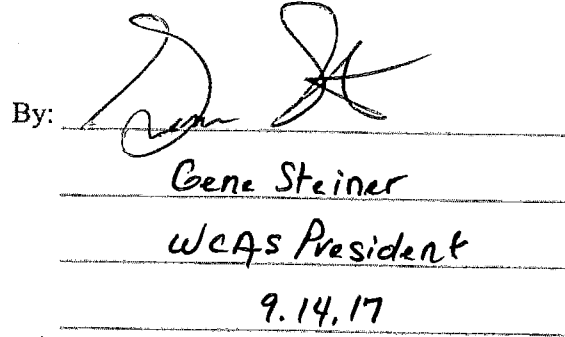 By:
Gene Steiner
WCAS President
9.14.17